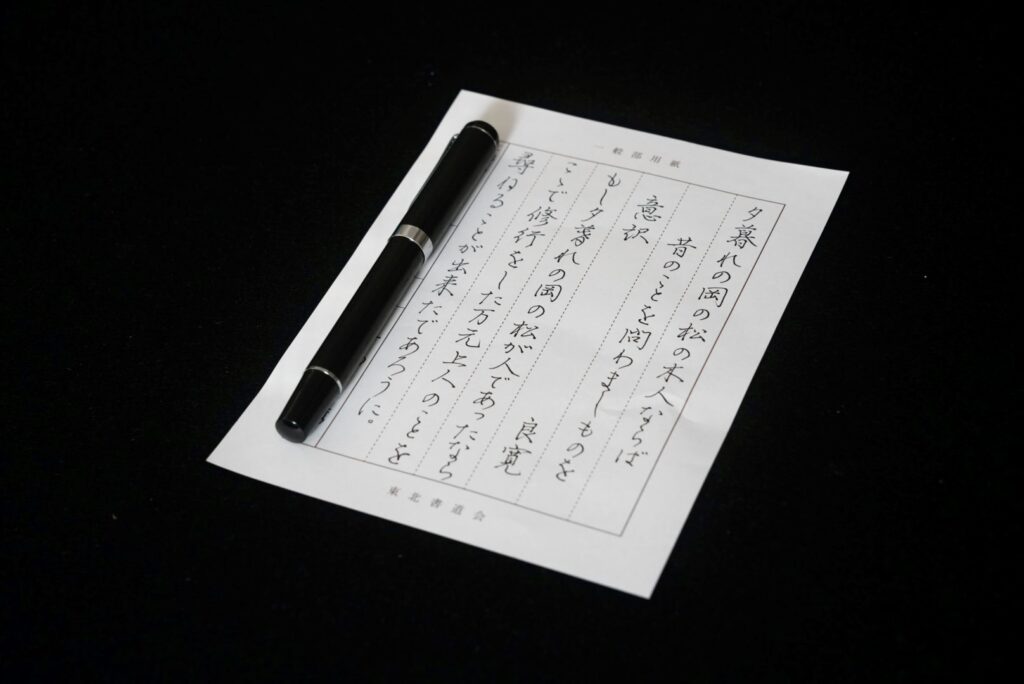 一般部用紙
夕暮れの岡の松の木人ならば
昔のことを問わましものを
意訳　良寛
もし夕暮れの岡の松が人であったなら
ここで修行をした万元上人のことを
尋ねることが出来たであろうに。
東北書道会